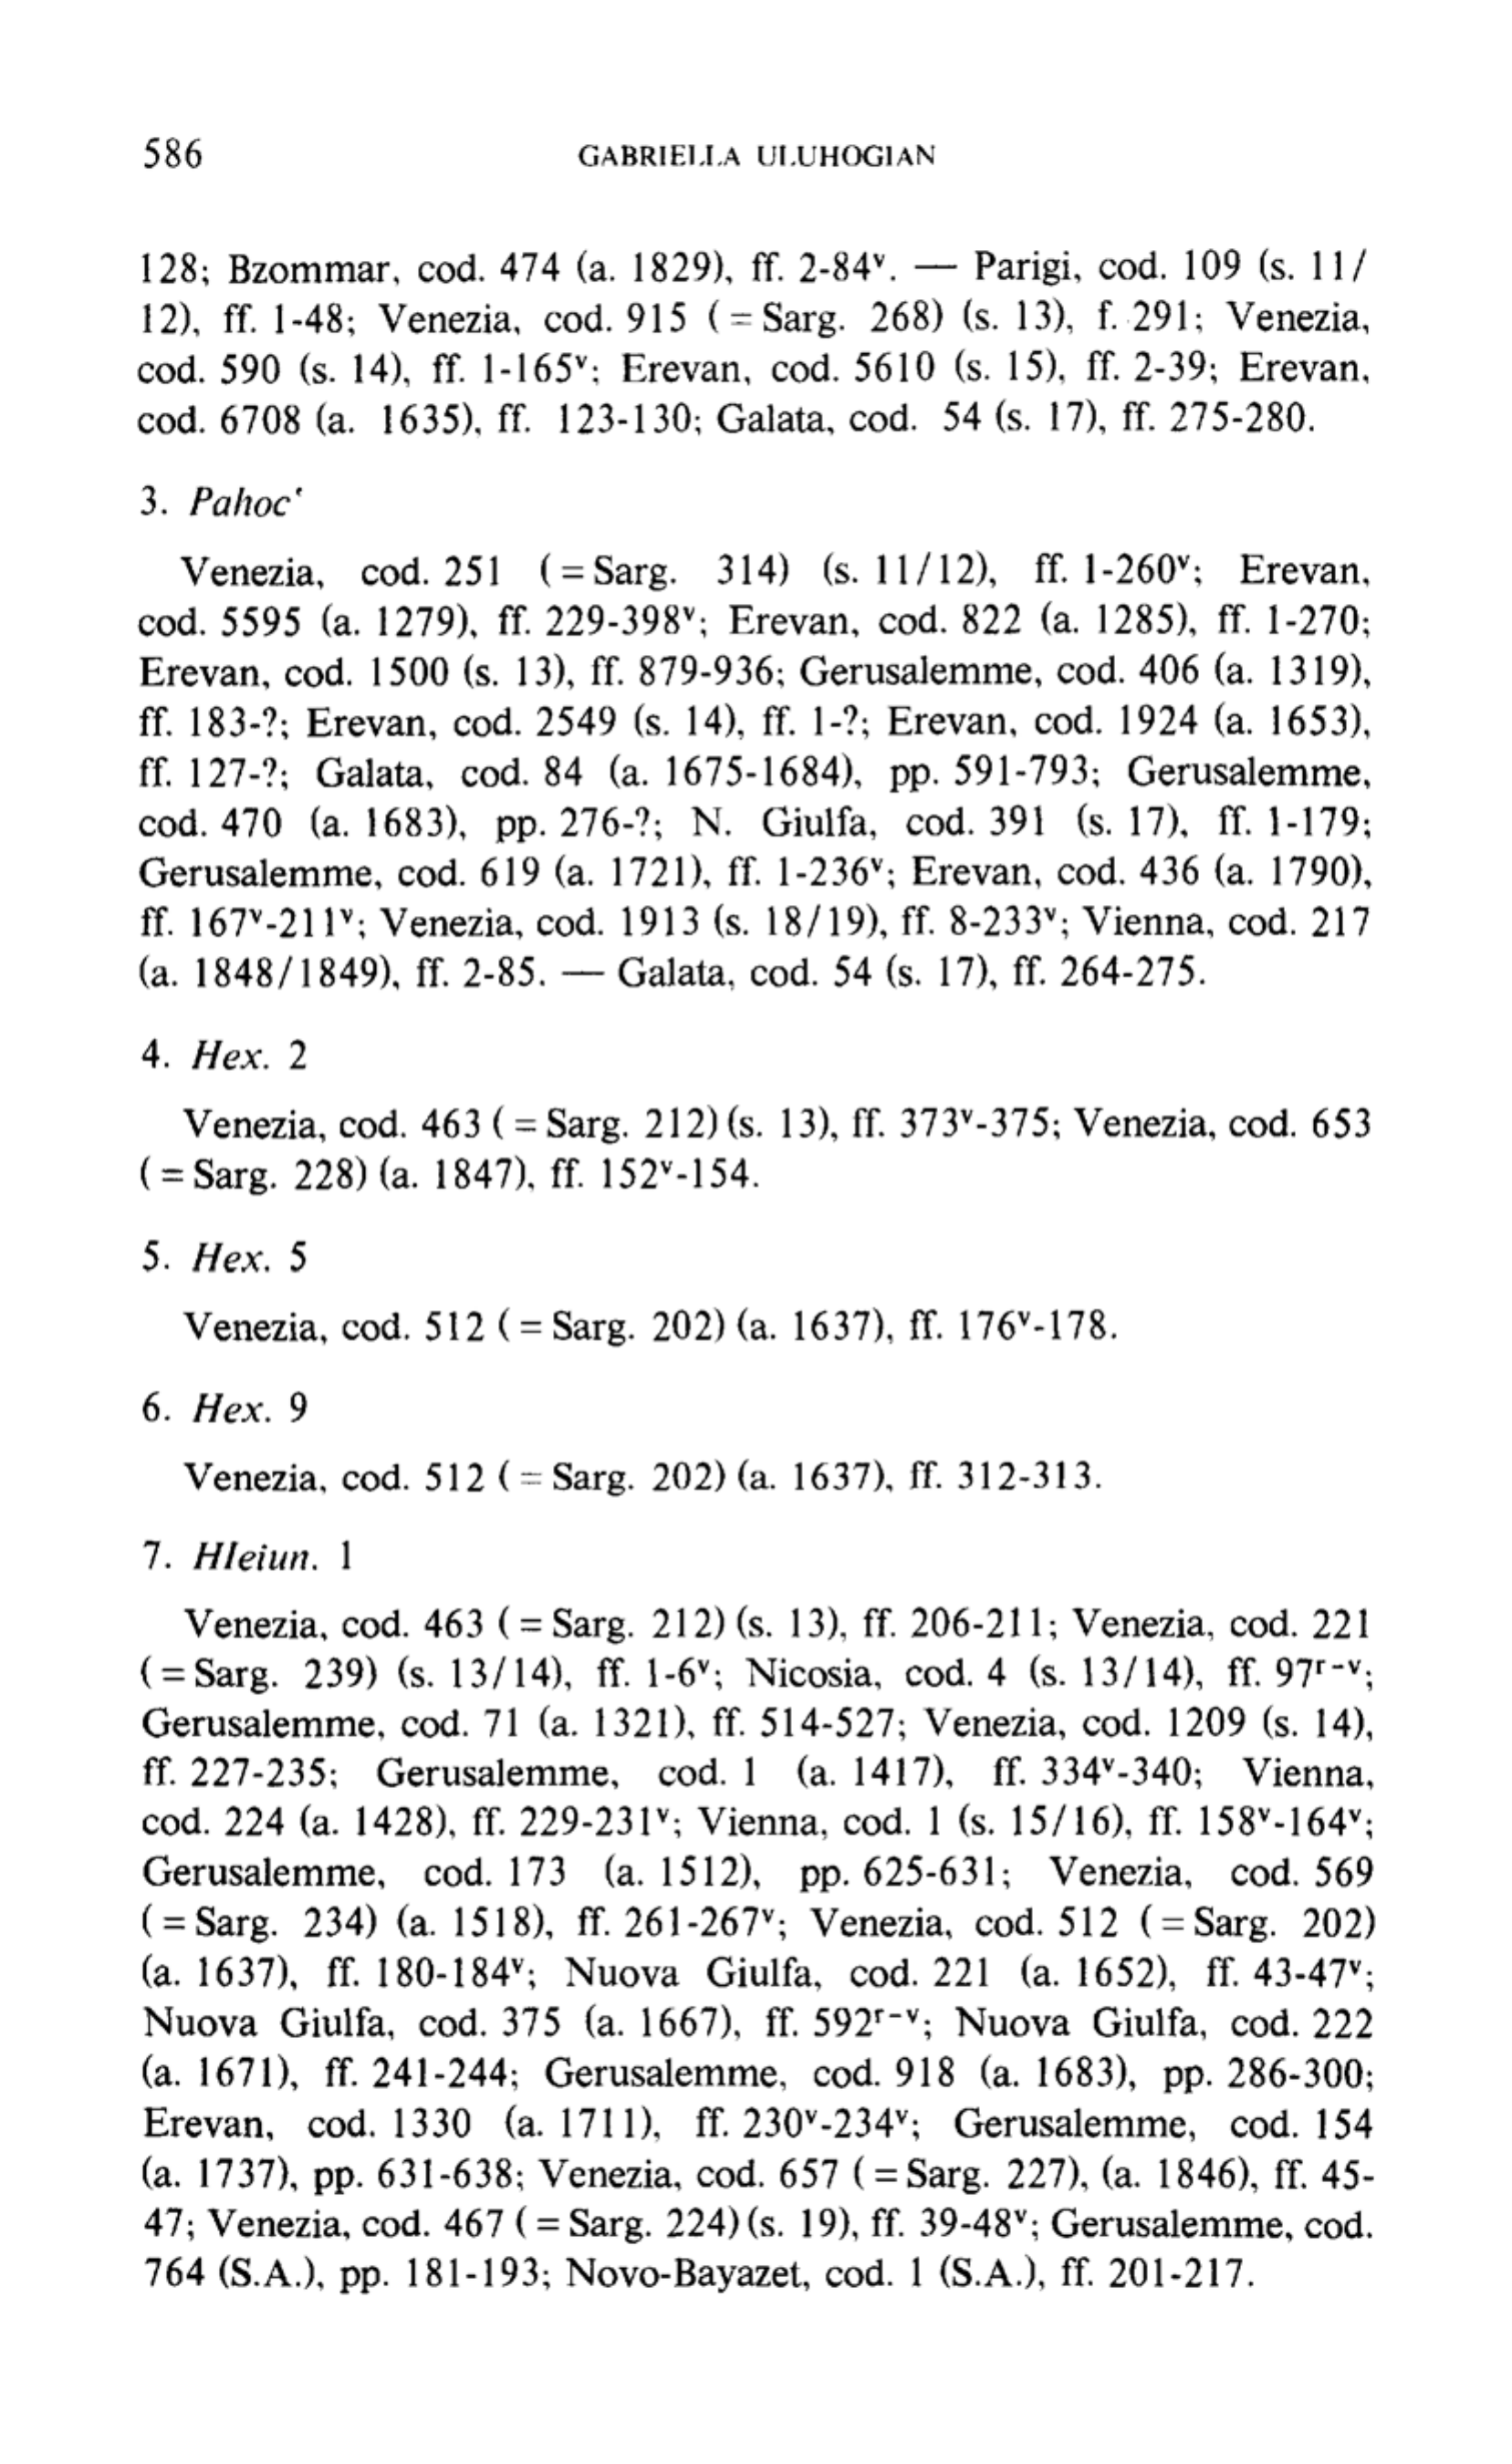 586 GABRIELLA ULUHOGIAN
128; Bzommar, cod. 474 (a. 1829), ff. 2-84ᵛ. — Parigi, cod. 109 (s. 11/
12), ff. 1-48; Venezia, cod. 915 (=Sarg. 268) (s. 13), f. 291; Venezia,
cod. 590 (s. 14), ff. 1-165ᵛ; Erevan, cod. 5610 (s. 15), ff. 2-39; Erevan,
cod. 6708 (a. 1635), ff. 123-130; Galata, cod. 54 (s. 17), ff. 275-280.
3. Pahocʻ
Venezia, cod. 251 (=Sarg. 314) (s. 11/12), ff. 1-260ᵛ; Erevan,
cod. 5595 (a. 1279), ff. 229-398ᵛ; Erevan, cod. 822 (a. 1285), ff. 1-270;
Erevan, cod. 1500 (s. 13), ff. 879-936; Gerusalemme, cod. 406 (a. 1319),
ff. 183-?; Erevan, cod. 2549 (s. 14), ff. 1-?; Erevan, cod. 1924 (a. 1653),
ff. 127-?; Galata, cod. 84 (a. 1675-1684), pp. 591-793; Gerusalemme,
cod. 470 (a. 1683), pp. 276-?; N. Giulfa, cod. 391 (s. 17), ff. 1-179;
Gerusalemme, cod. 619 (a. 1721), ff. 1-236ᵛ; Erevan, cod. 436 (a. 1790),
ff. 167ᵛ-211ᵛ; Venezia, cod. 1913 (s. 18/19), ff. 8-233ᵛ; Vienna, cod. 217
(a. 1848/1849), ff. 2-85. — Galata, cod. 54 (s. 17), ff. 264-275.
4. Hex. 2
Venezia, cod. 463 (=Sarg. 212) (s. 13), ff. 373ᵛ-375; Venezia, cod. 653
(=Sarg. 228) (a. 1847), ff. 152ᵛ-154.
5. Hex. 5
Venezia, cod. 512 (=Sarg. 202) (a. 1637), ff. 176ᵛ-178.
6. Hex. 9
Venezia, cod. 512 (=Sarg. 202) (a. 1637), ff. 312-313.
7. HIeiun. 1
Venezia, cod. 463 (=Sarg. 212) (s. 13), ff. 206-211; Venezia, cod. 221
(=Sarg. 239) (s. 13/14), ff. 1-6ᵛ; Nicosia, cod. 4 (s. 13/14), ff. 97ʳ-ᵛ;
Gerusalemme, cod. 71 (a. 1321), ff. 514-527; Venezia, cod. 1209 (s. 14),
ff. 227-235; Gerusalemme, cod. 1 (a. 1417), ff. 334ᵛ-340; Vienna,
cod. 224 (a. 1428), ff. 229-231ᵛ; Vienna, cod. 1 (s. 15/16), ff. 158ᵛ-164ᵛ;
Gerusalemme, cod. 173 (a. 1512), pp. 625-631; Venezia, cod. 569
(=Sarg. 234) (a. 1518), ff. 261-267ᵛ; Venezia, cod. 512 (=Sarg. 202)
(a. 1637), ff. 180-184ᵛ; Nuova Giulfa, cod. 221 (a. 1652), ff. 43-47ᵛ;
Nuova Giulfa, cod. 375 (a. 1667), ff. 592ʳ-ᵛ; Nuova Giulfa, cod. 222
(a. 1671), ff. 241-244; Gerusalemme, cod. 918 (a. 1683), pp. 286-300;
Erevan, cod. 1330 (a. 1711), ff. 230ᵛ-234ᵛ; Gerusalemme, cod. 154
(a. 1737), pp. 631-638; Venezia, cod. 657 (=Sarg. 227), (a. 1846), ff. 45-
47; Venezia, cod. 467 (=Sarg. 224) (s. 19), ff. 39-48ᵛ; Gerusalemme, cod.
764 (S.A.), pp. 181-193; Novo-Bayazet, cod. 1 (S.A.), ff. 201-217.